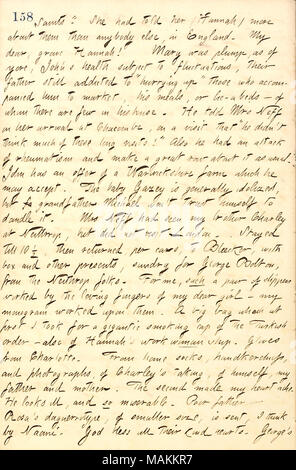 158
saints? She had told her (Hannah) more
about them than anybody else, in England. My
dear, grave Hannah! Mary was plump as of
yore, John's health subject to "fluctuations," their
father still addicted to "hurrying up" those who accom-
panied him to market, his meals, or lie-a-beds — of
whom there are few in his house. He told Mrs Neff
on her arrival at Chacombe, on a visit that he didn't
think much of these long visits! Also he had an attack
of rheumatism and made a great row about it as usual.
John has an offer of a Warwickshire farm which he
may accept. The baby Gazey is generally idolized,
but grandfather Michael won't trust himself to
dandle it. Mrs Neff had seen my brother Charley
at Neithrop, but did not visit London. Stayed
till 10 ½, then returned per cars, to Bleecker, with
box and other presents, sundry for George Bolton,
from the Neithrop folks. For me, such a pair of slippers
worked by the loving fingers of my dear girl — my
monogram worked upon them. A big bag whom at
first I took for a gigantic smoking cap of the Turkish
order — also of Hannah's workwomanship. Gloves
from Charlotte. From home socks, handkerchiefs,
and photographs, of Charley's taking, of himself, my
father and mother. The second made my heart ache.
He looks ill, and so miserable. Poor father —
Rosa's daguerrotype, of smaller size, is sent, I think
by Naomi. God bless all their kind hearts. George's
alamy
Image ID: MAKKR7
www.alamy.com